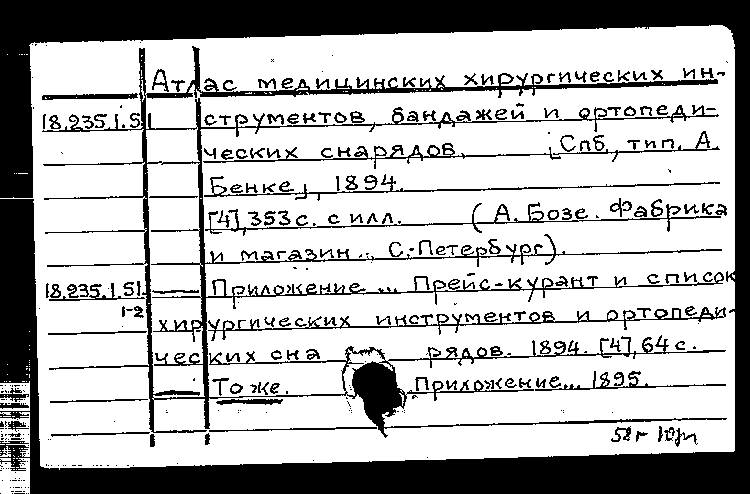 Атлас медицинских хирургических ин-
18.235.1.51 струментов, бандажей и ортопеди-
ческих снарядов. [Спб, тип. А.
Бенке], 1894.
[4], 353 с. с илл. (А. Бозе. Фабрика
и магазин.. С.-Петербург).
18.235.1.51. — Приложение... Прейс-курант и список
1-2 хирургических инструментов и ортопеди-
ческих сна рядов. 1894. [4], 64 с.
— То же. Приложение... 1895.